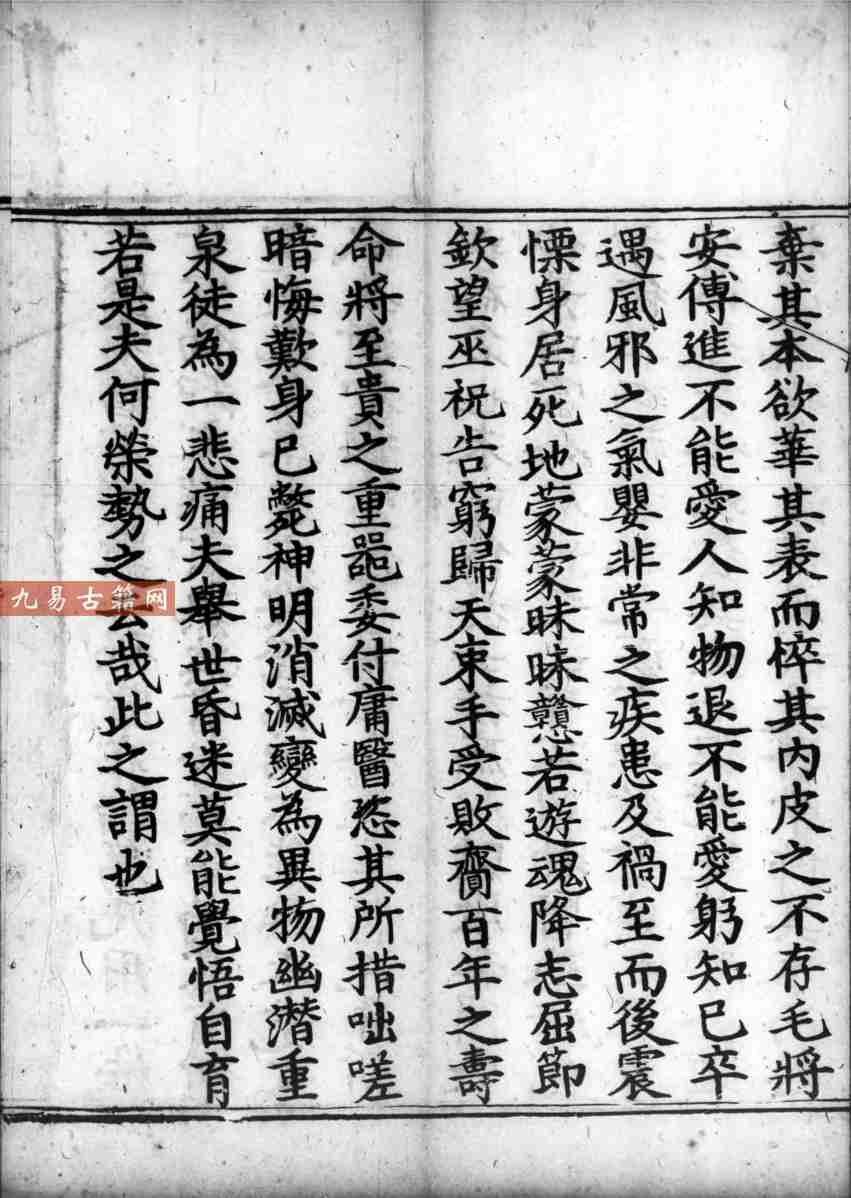 棄其本欲華其表而悴其內皮之不存毛將
安傅進不能愛人知物退不能愛躬知已卒
遇風邪之氣嬰非常之疾患及禍至而後震
慄身居死地蒙蒙昧昧戇若遊魂降志屈節
欽望巫祝告窮歸天束手受敗齎百年之壽
命將至貴之重器委付庸醫恣其所措咄嗟
暗悔歎身已斃神明消滅變為異物幽潛重
泉徒為一悲痛夫舉世昏迷莫能覺悟自育
若是夫何榮勢之云哉此之謂也
九易古籍网